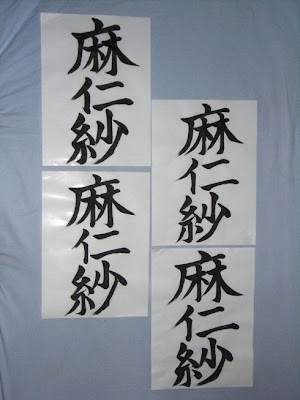 麻仁紗
麻仁紗
麻仁紗
麻仁紗